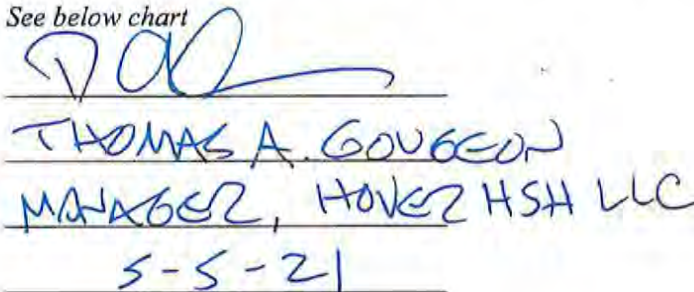 See below chart
THOMAS A. GOUGEON
MANAGER, HOVER HSH LLC
5-5-21